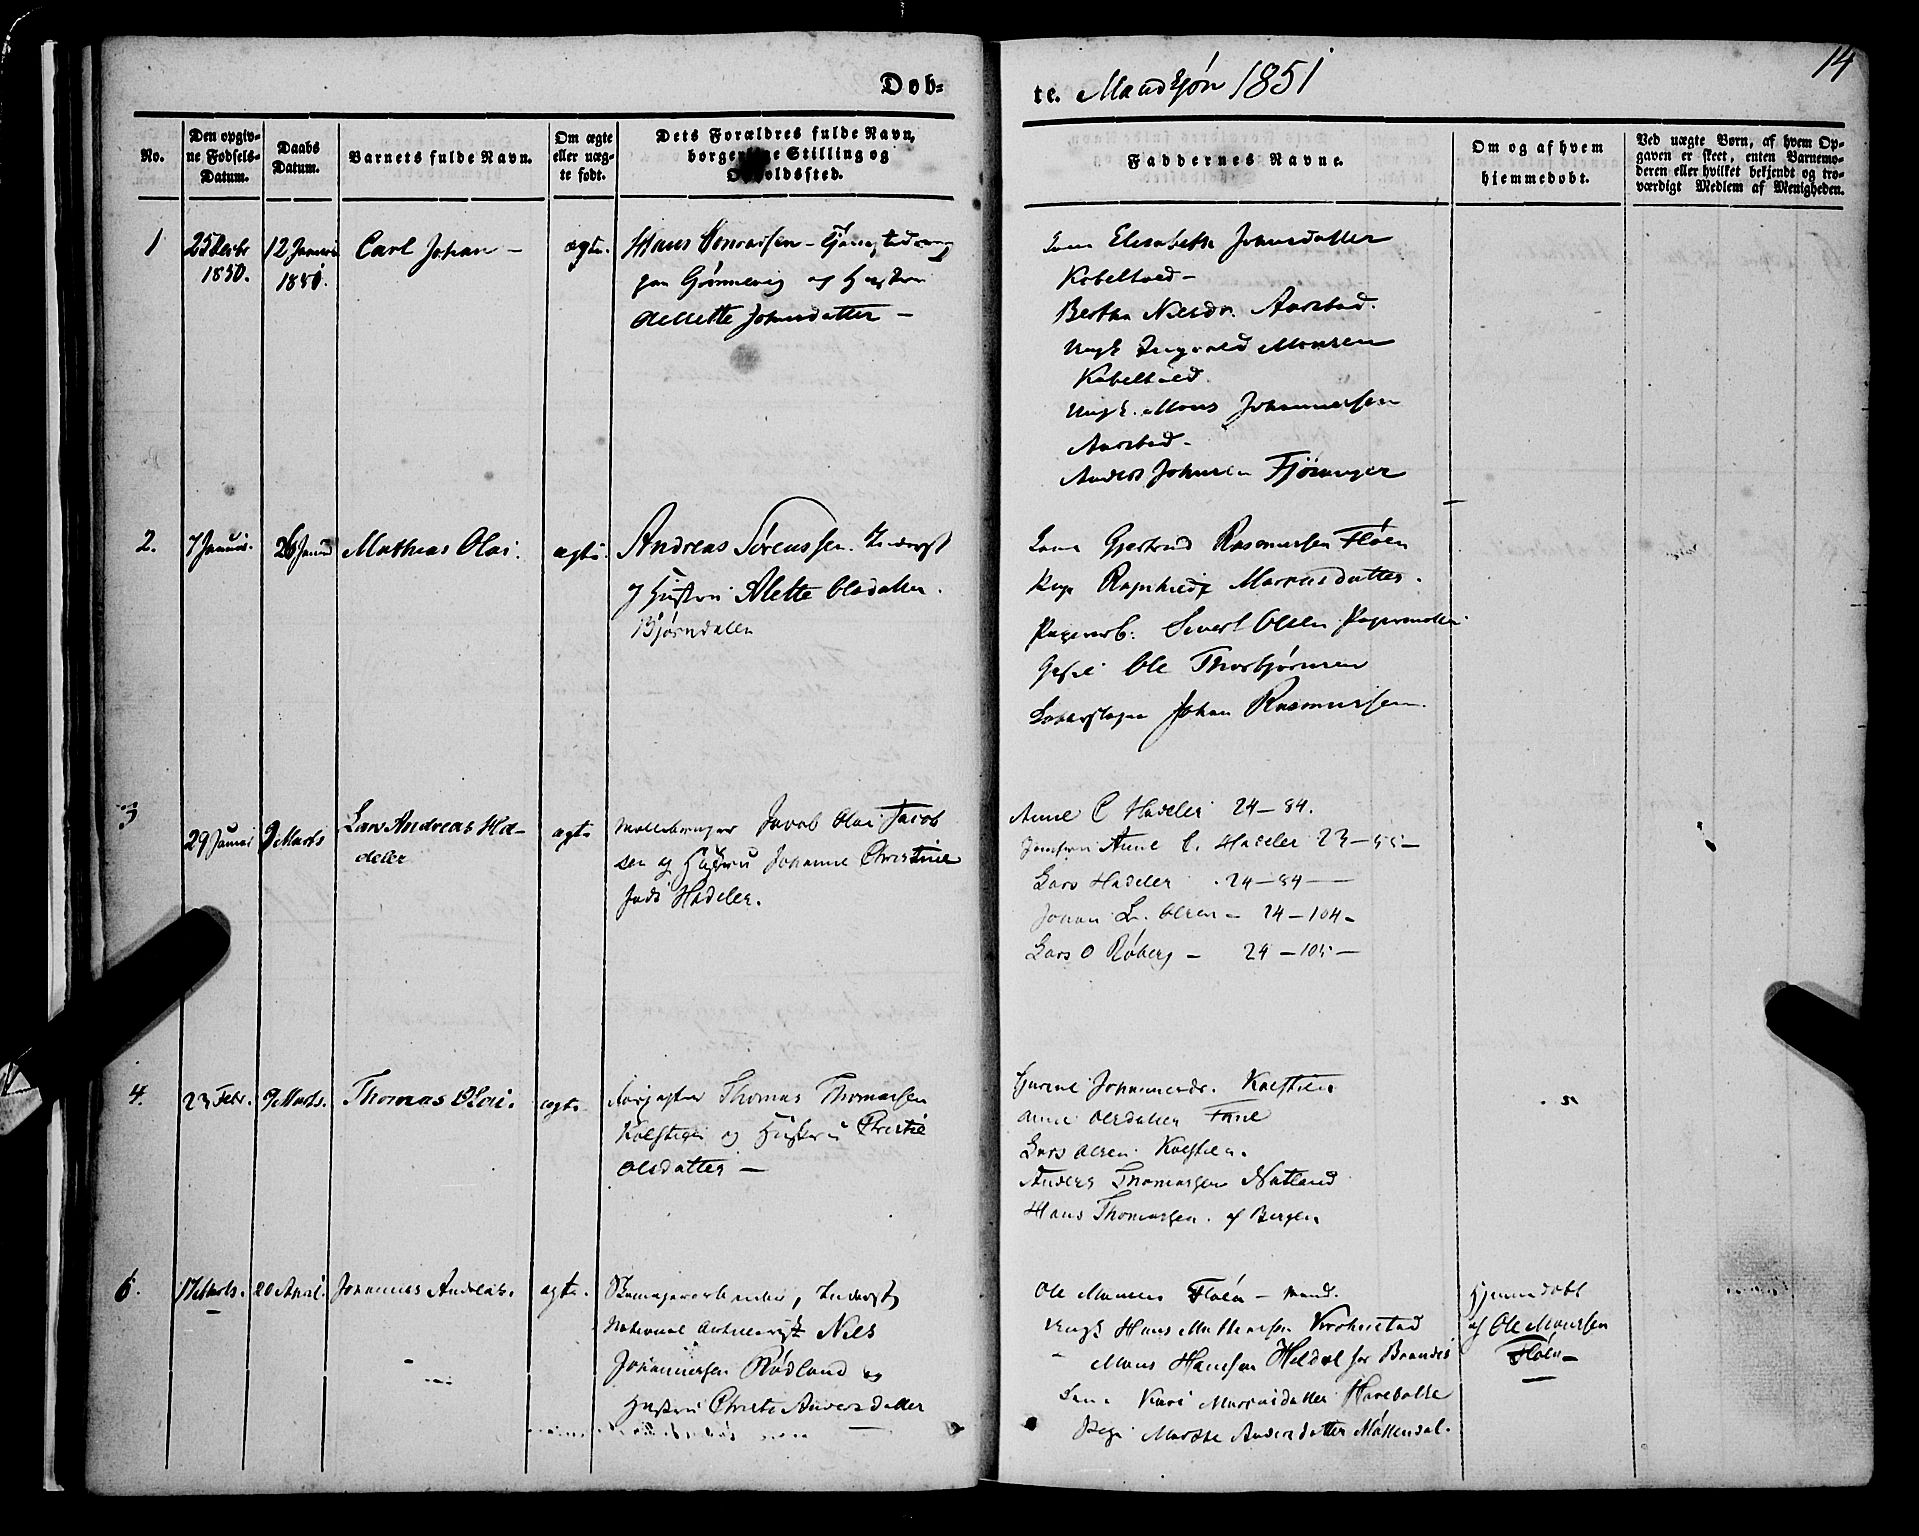 14
Døb-
te. Mandkjøn 1851
No.
Den opgiv-
ne Fødsels-
Datum.
Daabs
Datum.
Barnets fulde Navn.
Om ægte
eller uæg-
te født.
Dets Forældres fulde Navn,
borgerlige Stilling og
Opholdssted.
Faddernes Navne.
Om og af hvem
hjemmedøbt.
Ved uægte Børn, af hvem Op-
gaven er skeet, enten Barnemo-
deren eller hvilket bekjendt og tro-
værdigt Medlem af Menigheden.
1
25 Decbr
1850.
12 Januar
1851.
Carl Johan -
ægte.
Hans
paa og Hustru
Johnsdatter -
Kone Elisabeth Johnsdatter
Kobeltved -
Bertha Nielsdr. Aarstad.
Ungk Ingvald Monsen
Kobeltved.
Ungk. Mons Johannessen
Aarstad -
Anders Johnsen Fjøsanger
2.
7 Januar.
26 Januar
Mathias Olai.
ægte.
Andreas Sørenssen. Inderst
og Hustru Alette Olsdatter.
Bjørndalen
Kone Gjertrud Rasmussen Fløen
Pige Ragnhilde Markusdatter.
Papirarb. Sivert Olsen Papermøllen
Ole Thorbjørnsen
Johan Rasmussen
3
29 Januar
9 Marts
Lars Andreas Ha-
deler
ægte
Møllebruger Jacob Olai Jacob
sen og Hustru Johanne Christine
født Hadeler.
Anne C Hadeler 24 - 84.
Jomfru Anne C. Hadeler 23 - 55 -
Lars Hadeler . 24 - 84 -
Johan L. Olsen - 24 - 104 -
Lars O Røberg - 24 - 105 -
4.
23 Febr.
9 Marts.
Thomas Olai.
ægte
Thomas Thomassen
Kalfstien og Hustru Christie
Olsdatter -
Johannesdr. Kalfstien
Anne Olsdatter Fane
Lars Olsen Kalfstien.
Anders Thomassen Natland
Hans Thomassen. af Bergen
17 Marts.
20 April.
Johannes Andreas.
ægte.
Inderst,
National Niels
Johannessen Rødland og
Hustru Christi Andersdatter
Ole Monsen Fløen - Mand.
Ungk Hans Mathiassen Kronstad
- Mons Hansen Heldal for Brandis
Kone Kari Markusdatter Hanebakke
Pige Marthe Andersdatter Møllendal.
Hjemmedøbt
af Ole Monssen
Fløen -